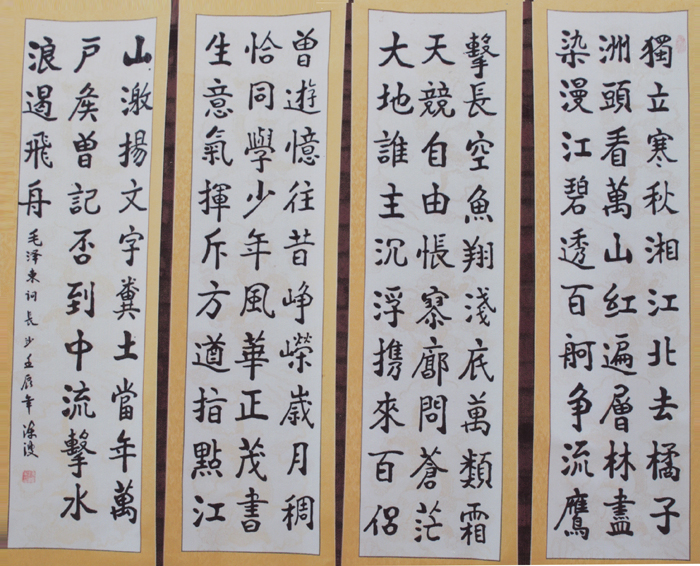 獨立寒秋湘江北去橘子
洲頭看萬山紅遍層林盡
染漫江碧透百舸争流鷹
擊長空魚翔淺底萬類霜
天競自由悵寥廓問蒼茫
大地誰主沉浮携來百侣
曾遊憶往昔崢嶸歲月稠
恰同學少年風華正茂書
生意氣揮斥方遒指點江
山激揚文字糞土當年萬
户矦曾記否到中流擊水
浪遏飛舟
毛澤東詞長沙